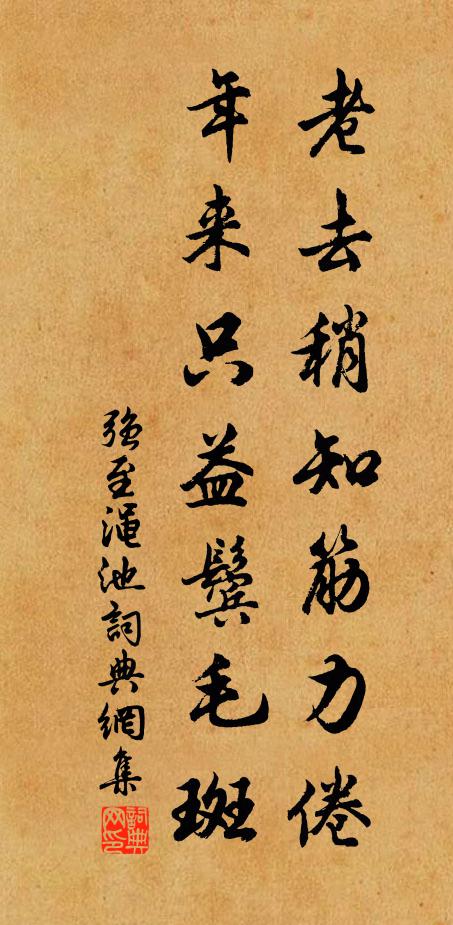 老去稍知筋力倦
年来只益鬓毛斑
强至渑池詞典網集
詞典网印